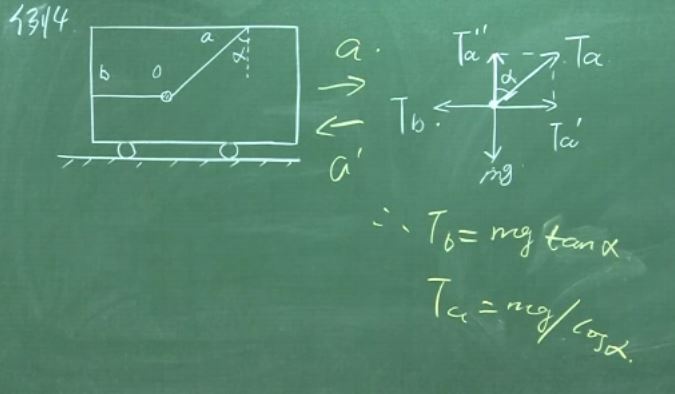 例4
a
α
b
O
a
a'
Ta''
Ta
α
Tb
Ta'
mg
∴ Tb = mg tanα
Ta = mg/cosα